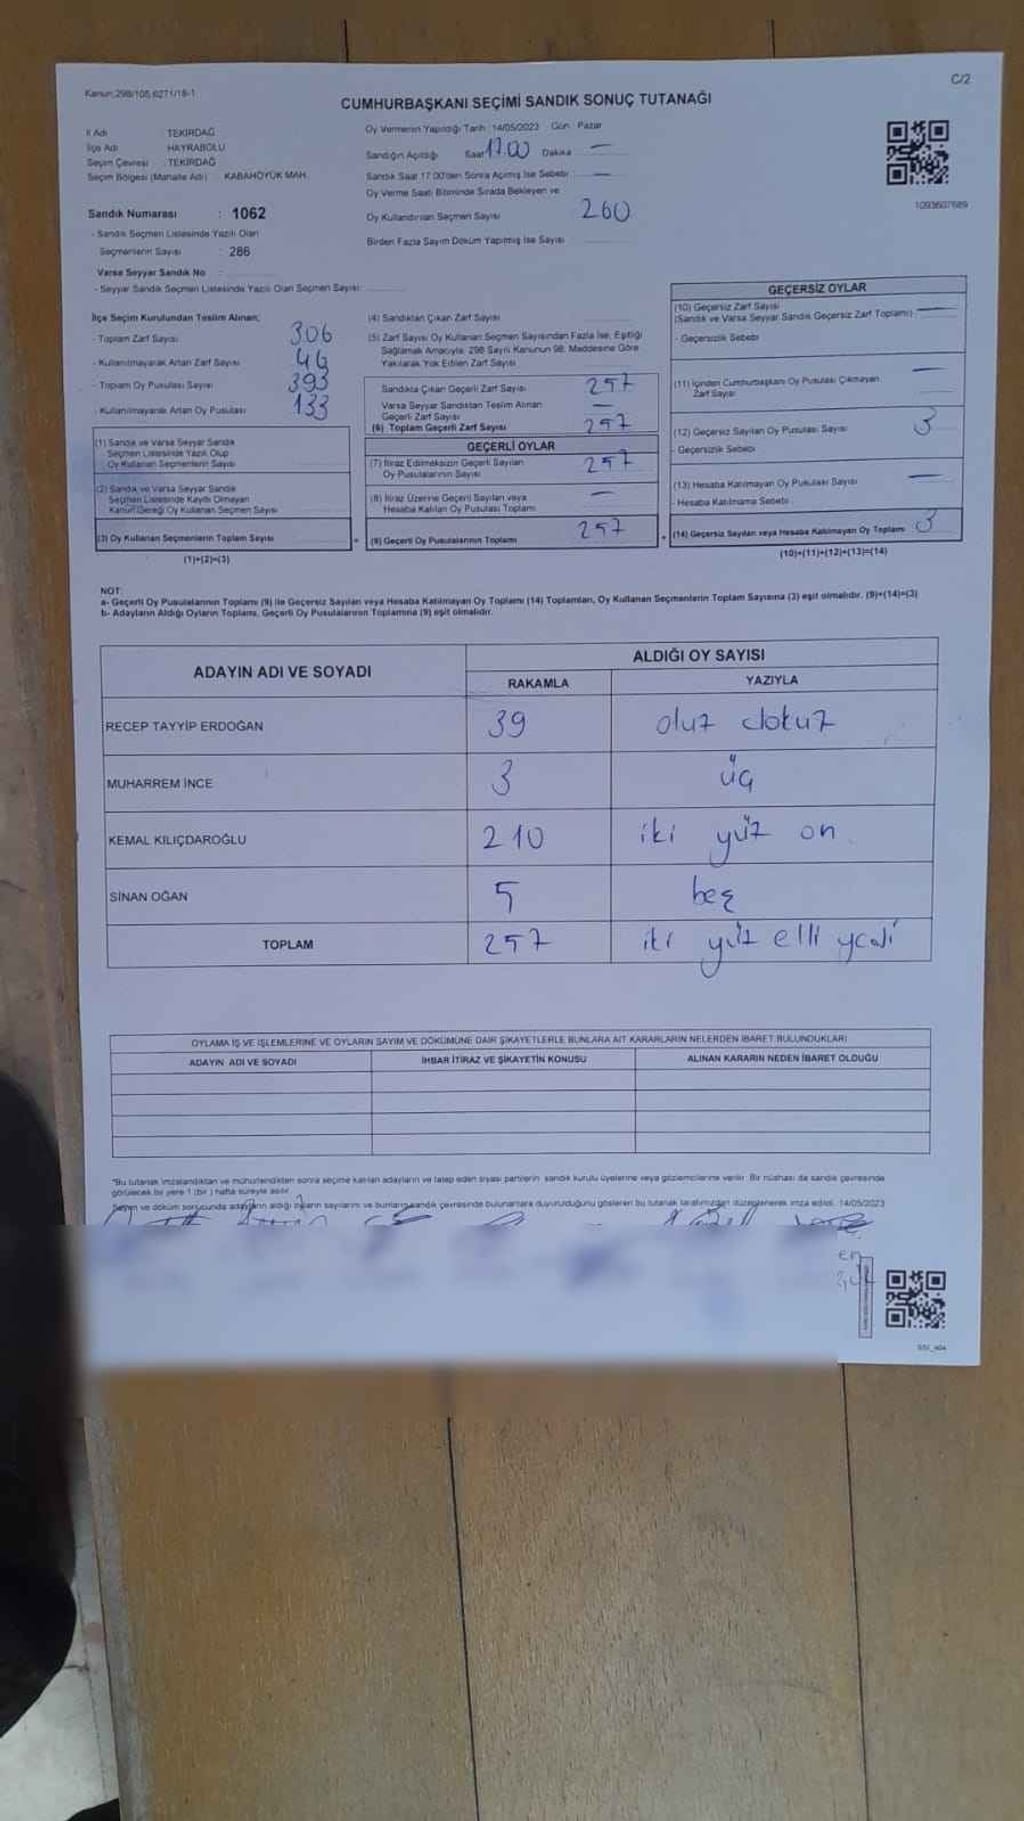 Kanun:298/105,6271/18-1
C/2
CUMHURBAŞKANI SEÇİMİ SANDIK SONUÇ TUTANAĞI
İl Adı TEKİRDAĞ
İlçe Adı HAYRABOLU
Seçim Çevresi : TEKİRDAĞ
Seçim Bölgesi (Mahalle Adı) KABAHÖYÜK MAH.
Oy Vermenin Yapıldığı Tarih :14/05/2023 Gün : Pazar
Sandığın Açıldığı Saat 17.00 Dakika —
Sandık Saat 17.00'den Sonra Açılmış İse Sebebi : —
Oy Verme Saati Bitiminde Sırada Bekleyen ve
Oy Kullandırılan Seçmen Sayısı 260
Birden Fazla Sayım Döküm Yapılmış İse Sayısı
1093607689
Sandık Numarası : 1062
- Sandık Seçmen Listesinde Yazılı Olan
Seçmenlerin Sayısı : 286
Varsa Seyyar Sandık No :
- Seyyar Sandık Seçmen Listesinde Yazılı Olan Seçmen Sayısı:
İlçe Seçim Kurulundan Teslim Alınan;
- Toplam Zarf Sayısı 306
- Kullanılmayarak Artan Zarf Sayısı 46
- Toplam Oy Pusulası Sayısı 393
- Kullanılmayarak Artan Oy Pusulası 133
(1) Sandık ve Varsa Seyyar Sandık
Seçmen Listesinde Yazılı Olup
Oy Kullanan Seçmenlerin Sayısı
(2) Sandık ve Varsa Seyyar Sandık
Seçmen Listesinde Kayıtlı Olmayan
Kanun Gereği Oy Kullanan Seçmen Sayısı
(3) Oy Kullanan Seçmenlerin Toplam Sayısı
(1)+(2)=(3)
(4) Sandıktan Çıkan Zarf Sayısı
(5) Zarf Sayısı Oy Kullanan Seçmen Sayısından Fazla İse, Eşitliği
Sağlamak Amacıyla; 298 Sayılı Kanunun 98. Maddesine Göre
Yakılarak Yok Edilen Zarf Sayısı
Sandıkta Çıkan Geçerli Zarf Sayısı 257
Varsa Seyyar Sandıktan Teslim Alınan
Geçerli Zarf Sayısı —
(6) Toplam Geçerli Zarf Sayısı 257
GEÇERLİ OYLAR
(7) İtiraz Edilmeksizin Geçerli Sayılan
Oy Pusulalarının Sayısı 257
(8) İtiraz Üzerine Geçerli Sayılan veya
Hesaba Katılan Oy Pusulası Toplamı —
(9) Geçerli Oy Pusulalarının Toplamı 257
GEÇERSİZ OYLAR
(10) Geçersiz Zarf Sayısı
(Sandık ve Varsa Seyyar Sandık Geçersiz Zarf Toplamı) —
- Geçersizlik Sebebi
(11) İçinden Cumhurbaşkanı Oy Pusulası Çıkmayan
Zarf Sayısı —
(12) Geçersiz Sayılan Oy Pusulası Sayısı 3
- Geçersizlik Sebebi
(13) Hesaba Katılmayan Oy Pusulası Sayısı —
- Hesaba Katılmama Sebebi
(14) Geçersiz Sayılan veya Hesaba Katılmayan Oy Toplamı 3
(10)+(11)+(12)+(13)=(14)
NOT:
a- Geçerli Oy Pusulalarının Toplamı (9) ile Geçersiz Sayılan veya Hesaba Katılmayan Oy Toplamı (14) Toplamları, Oy Kullanan Seçmenlerin Toplam Sayısına (3) eşit olmalıdır. (9)+(14)=(3)
b- Adayların Aldığı Oyların Toplamı, Geçerli Oy Pusulalarının Toplamına (9) eşit olmalıdır.
ADAYIN ADI VE SOYADI
ALDIĞI OY SAYISI
RAKAMLA YAZIYLA
RECEP TAYYİP ERDOĞAN 39 otuz dokuz
MUHARREM İNCE 3 üç
KEMAL KILIÇDAROĞLU 210 iki yüz on
SİNAN OĞAN 5 beş
TOPLAM 257 iki yüz elli yedi
OYLAMA İŞ VE İŞLEMLERİNE VE OYLARIN SAYIM VE DÖKÜMÜNE DAİR ŞİKAYETLERLE BUNLARA AİT KARARLARIN NELERDEN İBARET BULUNDUKLARI
ADAYIN ADI VE SOYADI İHBAR İTİRAZ VE ŞİKAYETİN KONUSU ALINAN KARARIN NEDEN İBARET OLDUĞU
"Bu tutanak imzalandıktan ve mühürlendikten sonra seçime katılan adayların ve talep eden siyasi partilerin sandık kurulu üyelerine veya gözlemcilerine verilir. Bir nüshası da sandık çevresinde
görülecek bir yere 1 (bir ) hafta süreyle asılır.
Seçim ve döküm sonucunda adayların aldığı oyların sayılarını ve bunların sandık çevresinde bulunanlara duyurulduğunu gösteren bu tutanak tarafımızdan düzenlenerek imza edildi. 14/05/2023